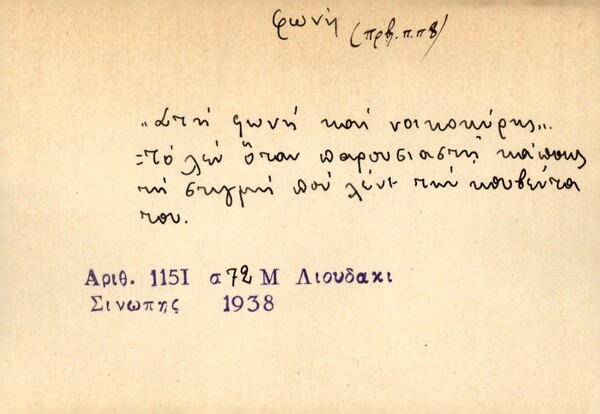 φωνή (πρβ. π.π 8)
"Στή φωνή καί νοικοκύρης".
=Τό λέν ὅταν παρουσιαστῇ κάποιος
τή στιγμή πού λένε τήν κουβέντα
του.
Αριθ. 1151 σ 72 Μ Λιουδακι
Σινωπης 1938